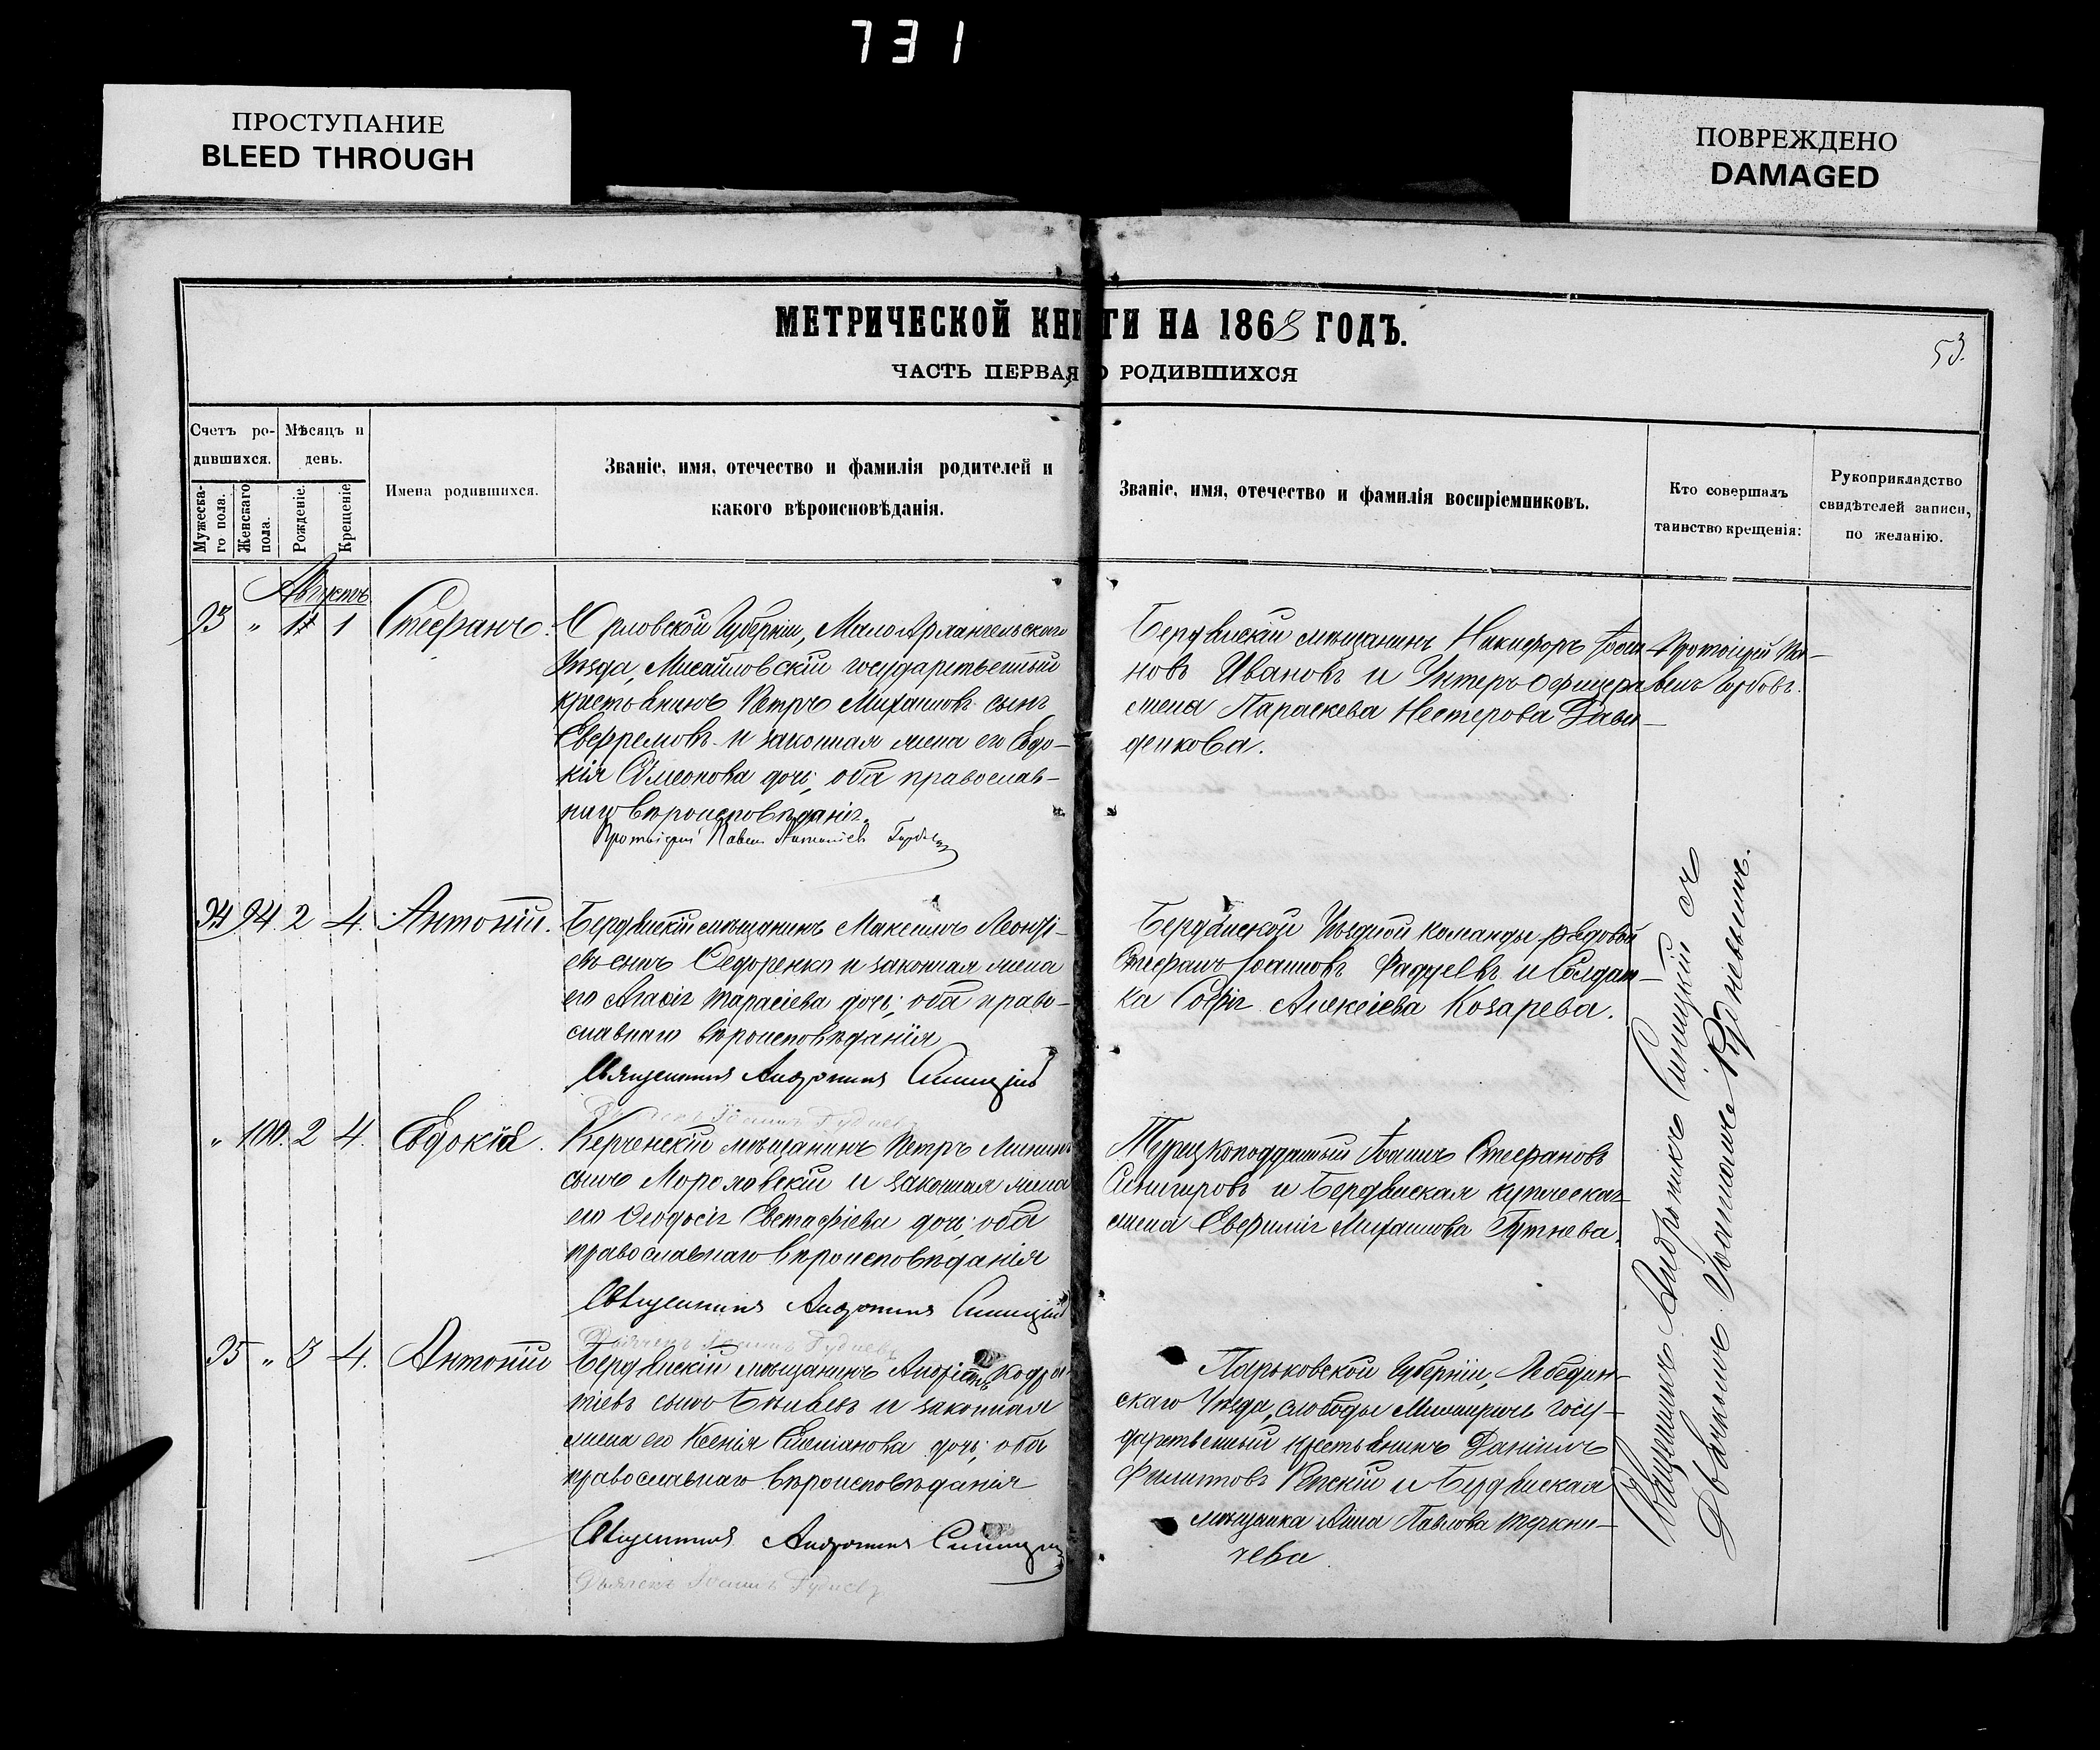 731
ПРОСТУПАНИЕ
BLEED THROUGH
ПОВРЕЖДЕНО
DAMAGED
МЕТРИЧЕСКОЙ КНИГИ НА 1868 ГОДЪ.
53.
ЧАСТЬ ПЕРВАЯ О РОДИВШИХСЯ
Счетъ ро-
дившихся.
Мужеска-
го пола.
Женскаго
пола.
Мѣсяцъ и
день.
Рожденіе.
Крещеніе.
Имена родившихся.
Званіе, имя, отечество и фамилія родителей и
какого вѣроисповѣданія.
Званіе, имя, отечество и фамилія воспріемниковъ.
Кто совершалъ
таинство крещенія:
Рукоприкладство
свидѣтелей записи,
по желанію.
Августъ
93 " 1 1 Стефанъ.
Орловской Губерніи, Мало Архангельскаго
Уѣзда, Михайловскій государственный
крестьянинъ Петръ Михаиловъ сынъ
Евфремовъ и законная жена его Евдо-
кія Симеонова дочь; оба православ-
наго вѣроисповѣданія.
Протоіерей Павелъ
Бердянскій мѣщанинъ Никифоръ Іоан-
новъ Ивановъ и Унтеръ-Офицер
жена Параскева Нестерова Дави-
денкова.
Протоіерей Па-
94 94. 2 4. Антоній.
Бердянскій мѣщанинъ Максимъ Леонті-
евъ сынъ Федоренко и законная жена
его Агафія Тарасіева дочь; оба право-
славнаго вѣроисповѣданія
Священникъ Андроникъ Синицкій
Бердянской Уѣздной команды рядовой
Стефанъ Іоанновъ Фадуевъ и Солдат-
ка Софія Алексіева Козарева.
" 100. 2 4. Евдокія.
Керченскій мѣщанинъ Петръ Мининъ
сынъ Мороховскій и законная жена
его Феодосія Евстафіева дочь; оба
православнаго вѣроисповѣданія
Священникъ Андроникъ Синицкій
Дьячекъ Іоаннъ Гудневъ
Турецкоподданный Іоаннъ Стефановъ
Синигировъ и Бердянская купеческая
жена Евфимія Михаилова Гутнева.
95 " 3 4. Антоній
Бердянскій мѣщанинъ Кодра-
тіевъ сынъ Бѣляевъ и законная
жена его Ксенія дочь; оба
православнаго вѣроисповѣданія
Священникъ Андроникъ Синицкій
Дьячекъ Іоаннъ Гудневъ
Харьковской Губерніи, Лебедин-
скаго Уѣзда, слободы госу-
дарственный крестьянинъ Даніилъ
Филипповъ и Бердянская
мѣщанка Анна Павлова
чева
Священникъ Андроникъ Синицкій съ
Дьячкомъ Іоанномъ